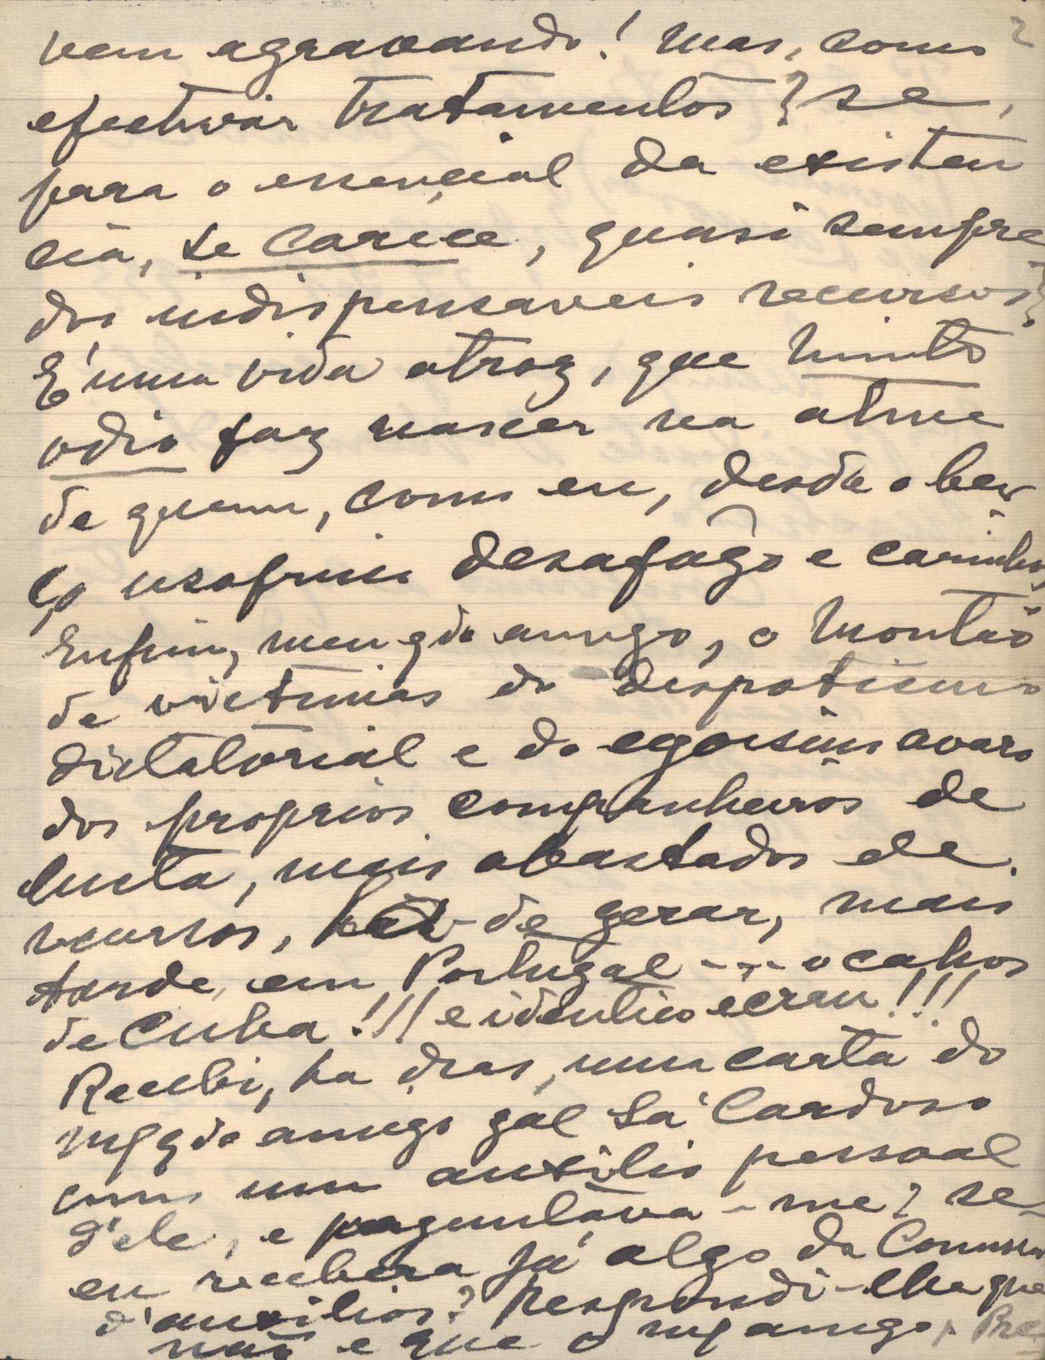 vem agravando! Mas, como
efectivar tratamentos? se,
para o essencial da existen
cia, se carece, quasi sempre
dos indispensaveis recursos?
E' uma vida atroz, que muito
odio faz nascer na alma
de quem, como eu, desde o ber
ço usofruiu desafôgo e carinho,
Enfim, meu qdo amigo, o montão
de victimas do despotismo
dictatorial e do egoismo avaro
dos proprios companheiros de
lucta, mais abastados de
recursos, ha-de gerar, mais
tarde, em Portugal --- o cahos
de Cuba!!! e identico écran!!!
Recebi, ha dias, uma carta do
mº qdo amigo gal Sá Cardoso
com um auxilio pessoal
d'ele, e preguntava-me? se
eu recebera já algo da Comissão
d'auxilios? Respondi-lhe que
não e que o mº amigo,